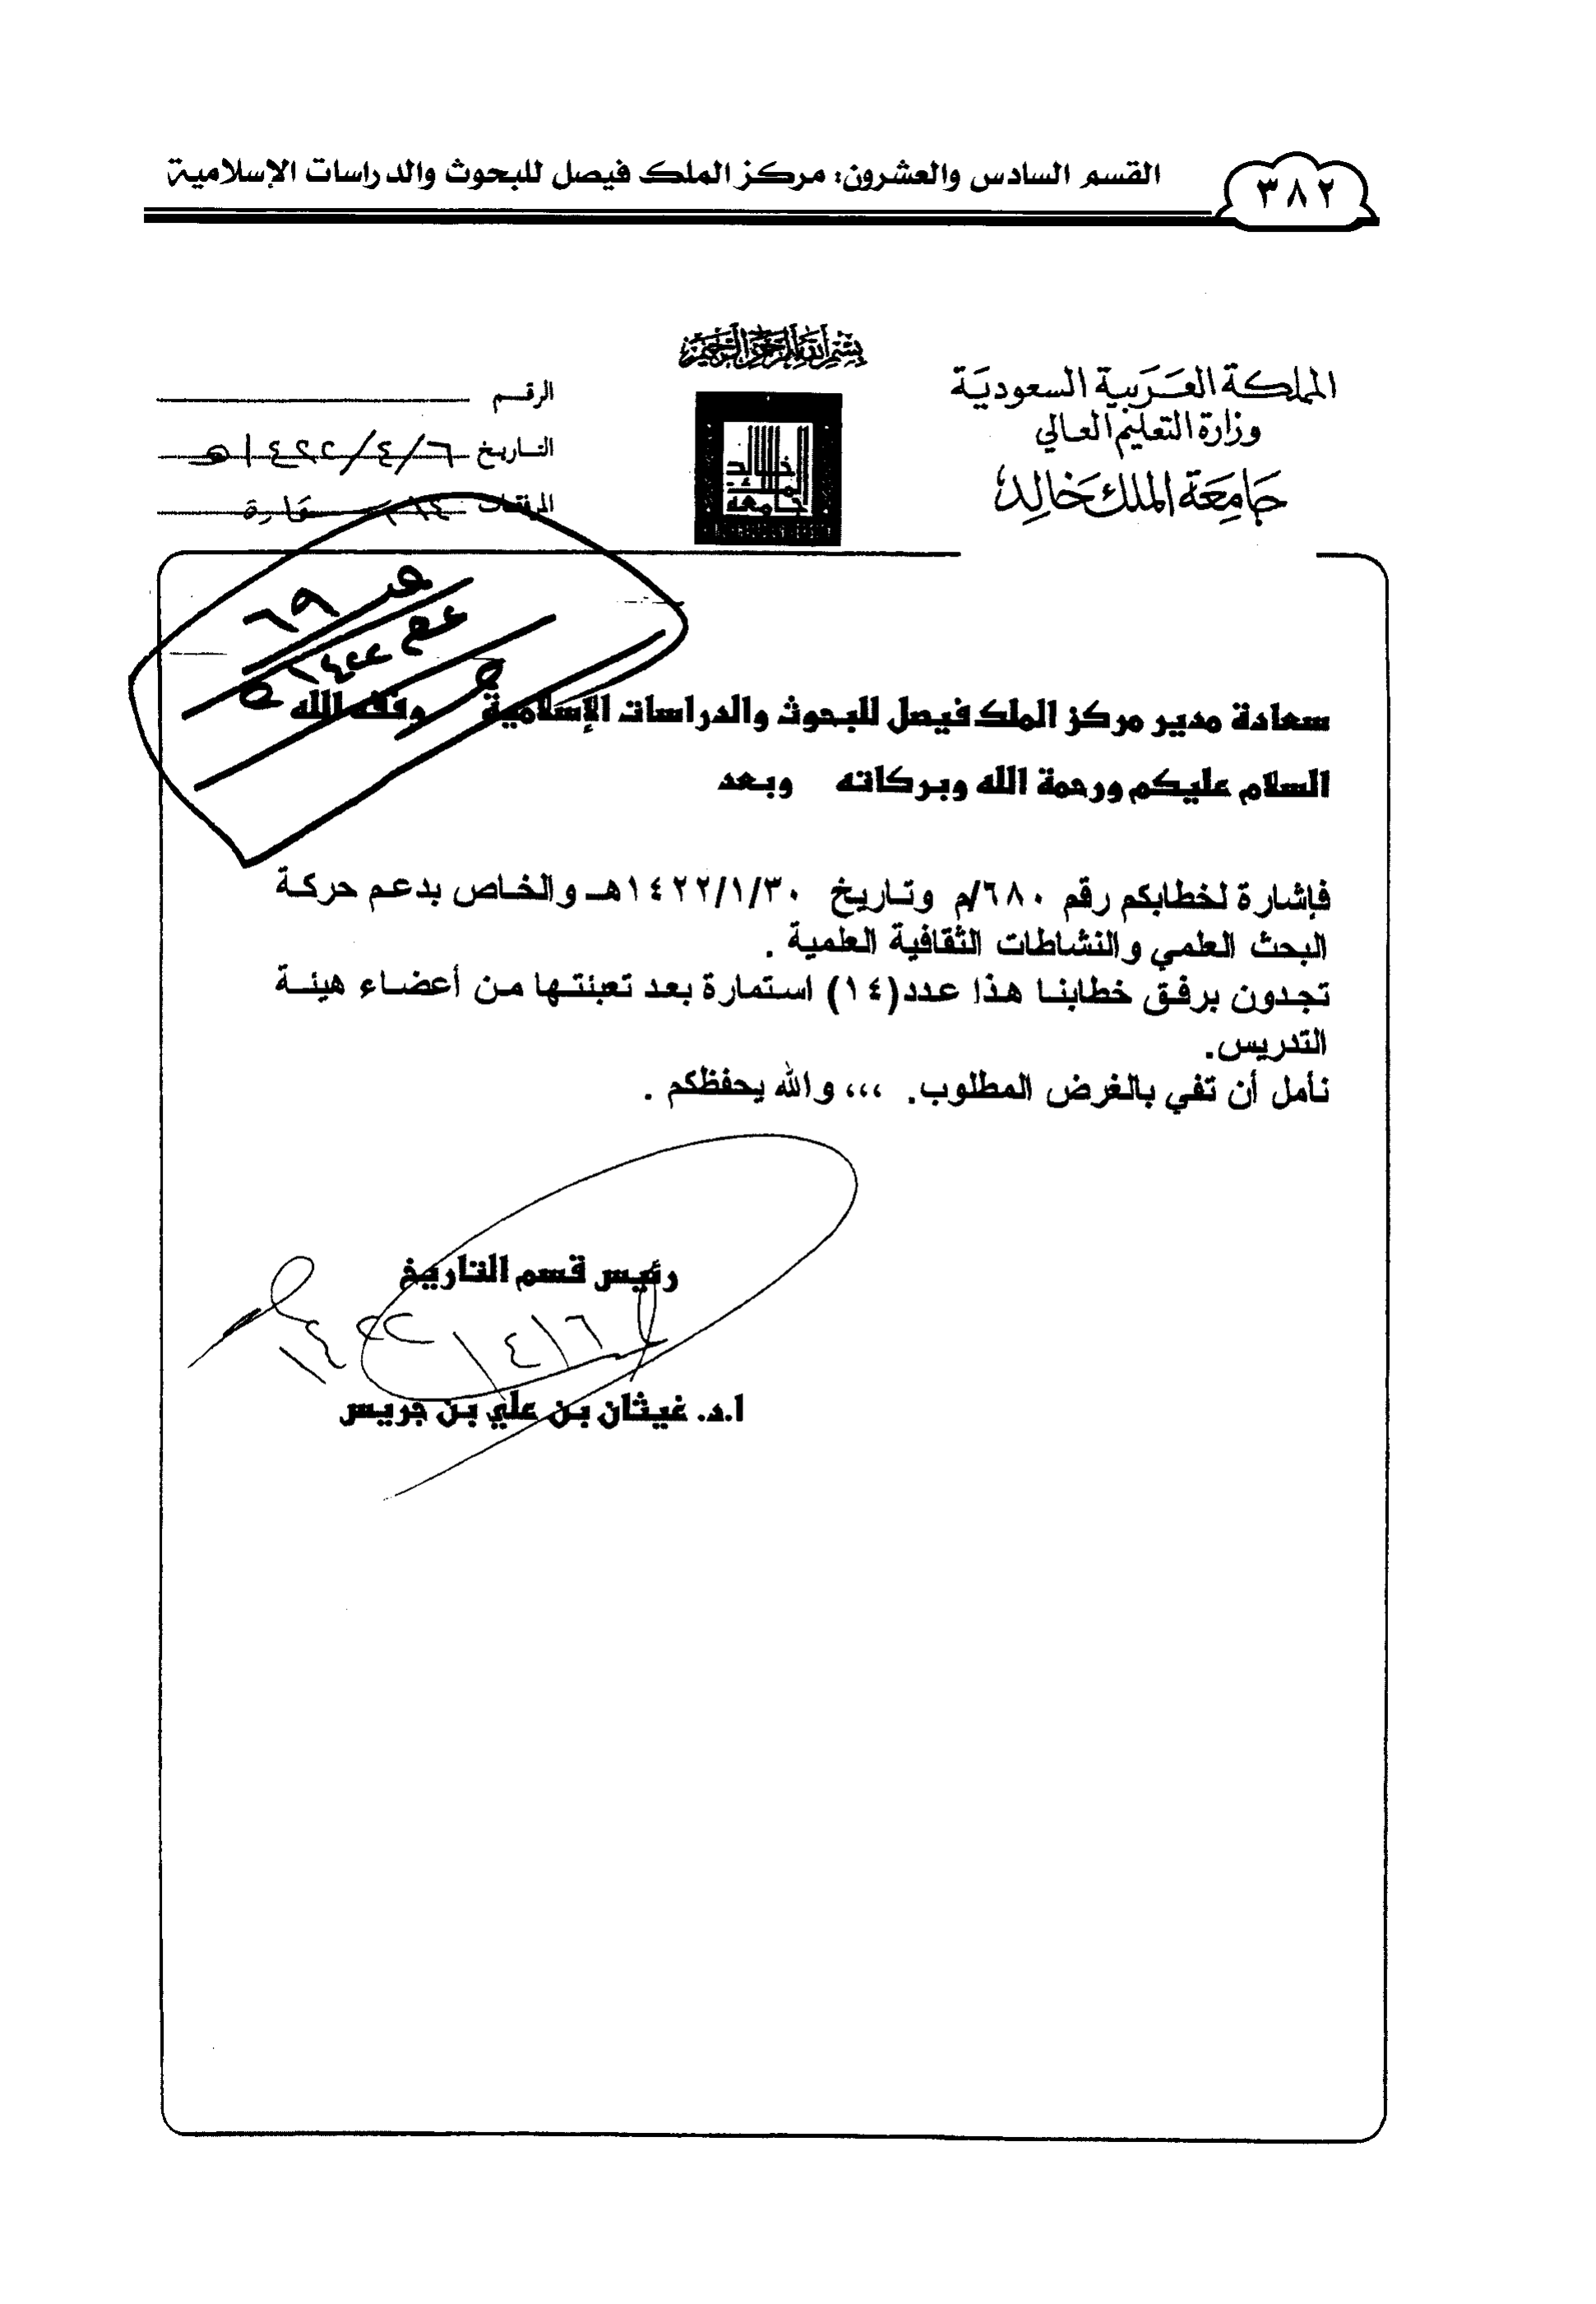 ٣٨٢
القسم السادس والعشرون: مركز الملك فيصل للبحوث والدراسات الإسلامية
بسم الله الرحمن الرحيم
المملكة العربية السعودية
وزارة التعليم العالي
جامعة الملك خالد
جامعة الملك خالد
الرقم
التاريخ ٦/٤/١٤٢٢هـ
المرفقات
٦٩
١٤٢٢
سعادة مدير مركز الملك فيصل للبحوث والدراسات الإسلامية وفقه الله
السلام عليكم ورحمة الله وبركاته وبعد
فإشارة لخطابكم رقم ٦٨٠/م وتاريخ ١٤٢٢/١/٣٠هـ والخاص بدعم حركة
البحث العلمي والنشاطات الثقافية العلمية .
تجدون برفق خطابنا هذا عدد(١٤) استمارة بعد تعبئتها من أعضاء هيئة
التدريس.
نأمل أن تفي بالغرض المطلوب. ،،، والله يحفظكم .
رئيس قسم التاريخ
٦/٤/١٤٢٢
ا.د. غيثان بن علي بن جريس